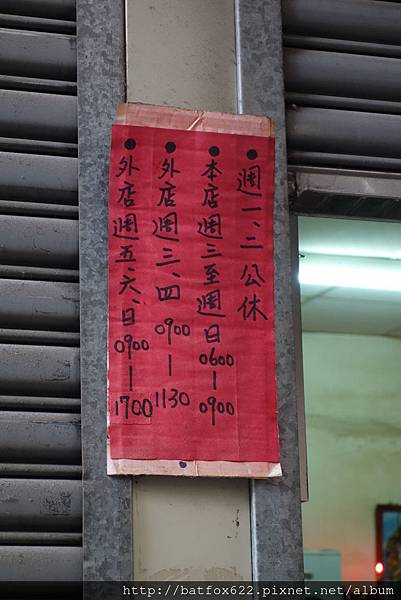 ●週一、二公休
●本店週三至週日0600-0900
●外店週三、四0900-1130
●外店週五、六、日0900-1700
http://batfox622.pixnet.net/album